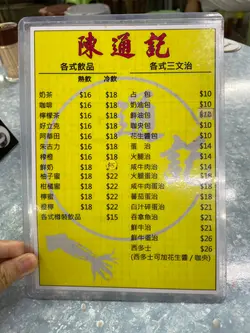 陳通記
各式飲品 各式三文治
熱飲 冷飲
奶茶 $16 $18 占包 $10
咖啡 $16 $18 奶油包 $10
檸檬茶 $16 $18 鮮油包 $10
好立克 $16 $18 咖央包 $10
阿華田 $16 $18 花生醬包 $10
朱古力 $16 $18 蛋治 $14
檸橙 $16 $18 火腿治 $14
鮮奶 $16 $18 咸牛治 $14
柚子蜜 $18 $22 火腿蛋治 $21
柑橘蜜 $18 $22 咸牛肉蛋治 $21
檸蜜 $18 $22 蕃茄蛋治 $21
橙檸 $18 $22 白汁碎蛋治 $21
各式樽裝飲品 $15 吞拿魚治 $21
鮮牛治 $21
鮮牛蛋治 $26
西多士 $26
(西多士可加花生醬/咖央)